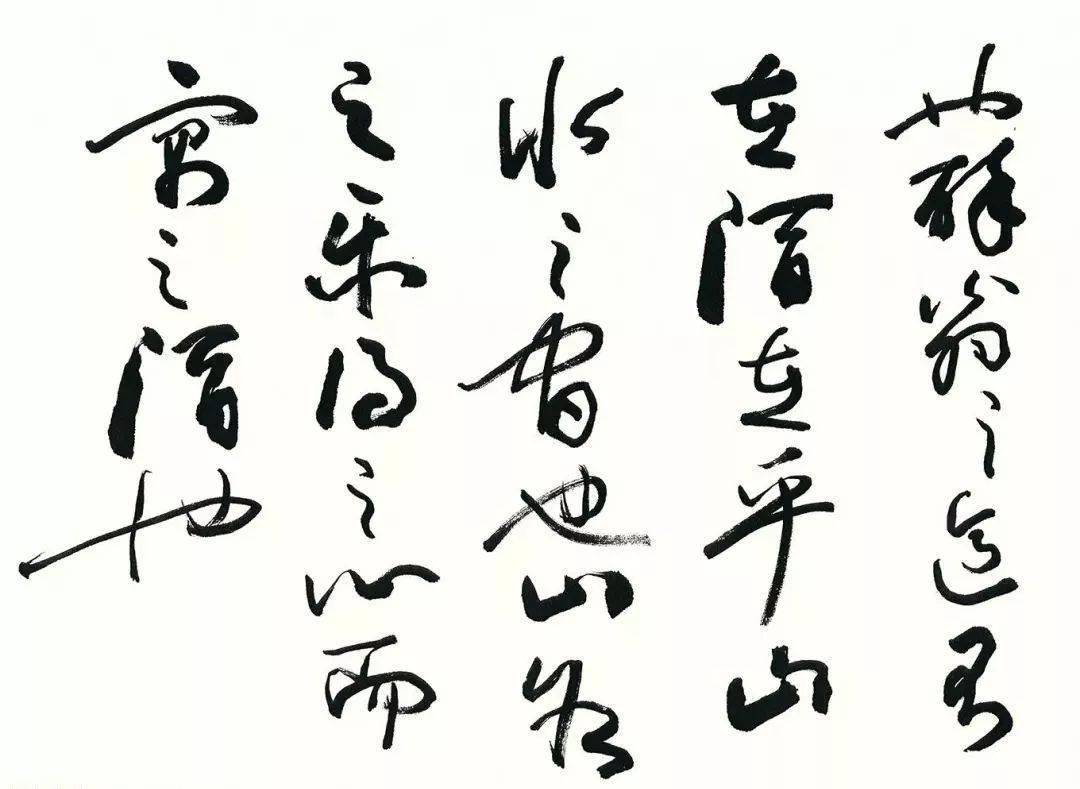 也醉翁之意不
在酒在乎山
水之间也山水
之乐得之心而
寓之酒也